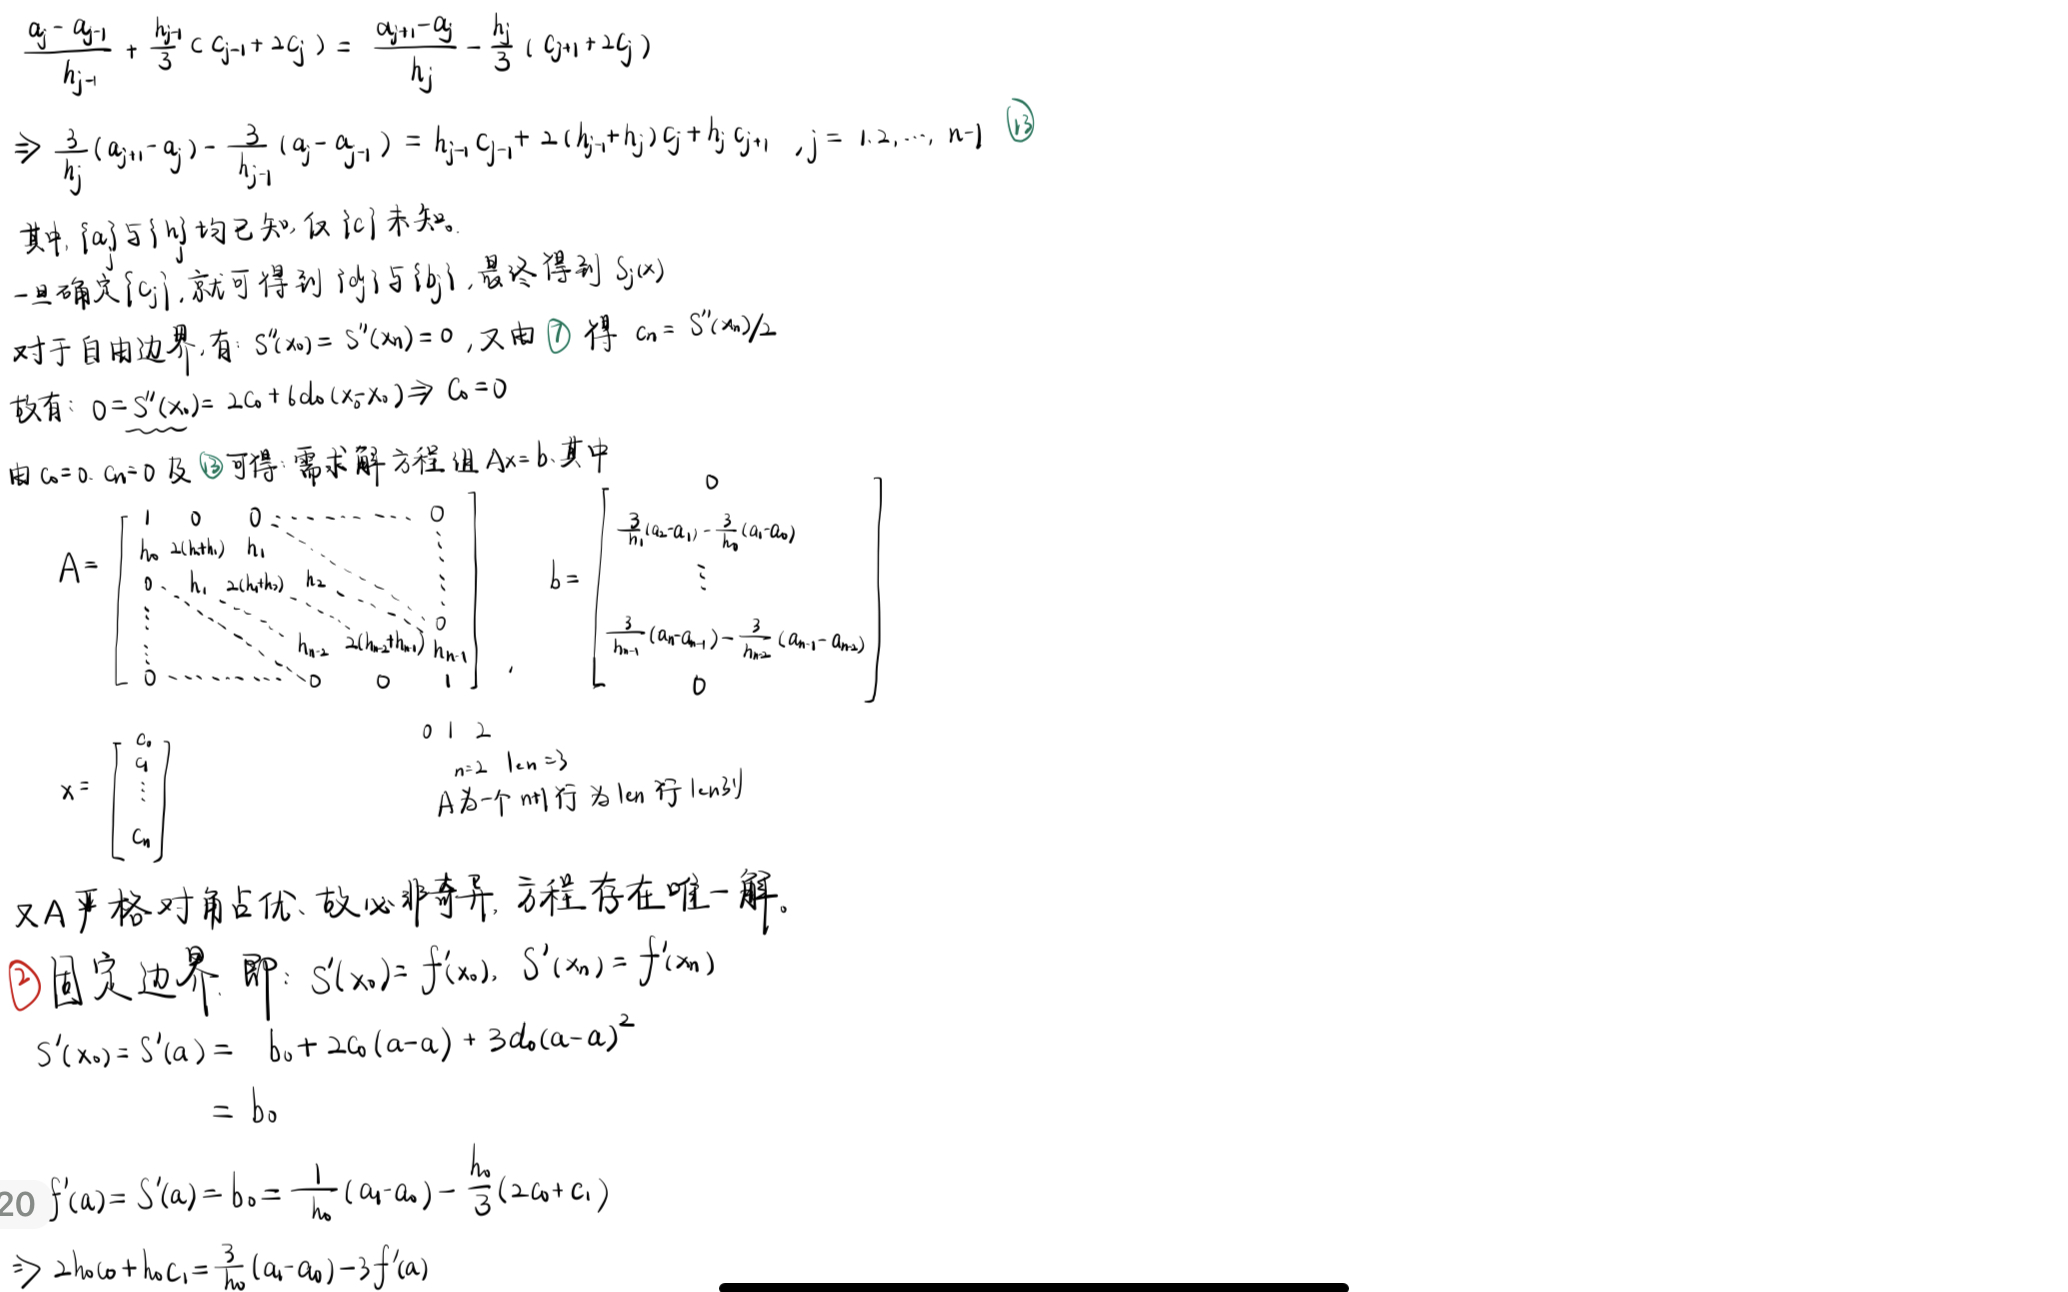 (aj - aj-1)/hj-1 + hj-1/3 (cj-1 + 2cj) = (aj+1 - aj)/hj - hj/3 (cj+1 + 2cj)
⇒ 3/hj (aj+1 - aj) - 3/hj-1 (aj - aj-1) = hj-1 cj-1 + 2(hj-1 + hj)cj + hj cj+1 , j = 1.2, ⋯, n-1 ⑬
其中, {aj}与{hj}均已知, 仅{c}未知。
一旦确定{cj}, 就可得到{dj}与{bj}, 最终得到 Sj(x)
对于自由边界, 有: S''(x0) = S''(xn) = 0, 又由⑦得 cn = S''(xn)/2
故有: 0 = S''(x0) = 2c0 + 6d0(x0-x0) ⇒ C0 = 0
由 c0=0. cn=0 及⑬可得: 需求解方程组 Ax=b. 其中
A = [
1 0 0 ⋯ 0
h0 2(h0+h1) h1
0 h1 2(h1+h2) h2
⋮ ⋱ 0
hn-2 2(hn-2+hn-1) hn-1
0 ⋯ 0 0 1
] ,
b = [
0
3/h1 (a2-a1) - 3/h0 (a1-a0)
⋮
3/hn-1 (an-an-1) - 3/hn-2 (an-1-an-2)
0
]
x = [
c0
c1
⋮
cn
]
0 1 2
n=2 len=3
A为一个 n+1行 为len行 len列
又A严格对角占优、故必非奇异, 方程存在唯一解。
② 固定边界. 即: S'(x0) = f'(x0), S'(xn) = f'(xn)
S'(x0) = S'(a) = b0 + 2c0(a-a) + 3d0(a-a)²
= b0
20
f'(a) = S'(a) = b0 = 1/h0 (a1-a0) - h0/3 (2c0+c1)
⇒ 2h0c0 + h0c1 = 3/h0 (a1-a0) - 3f'(a)